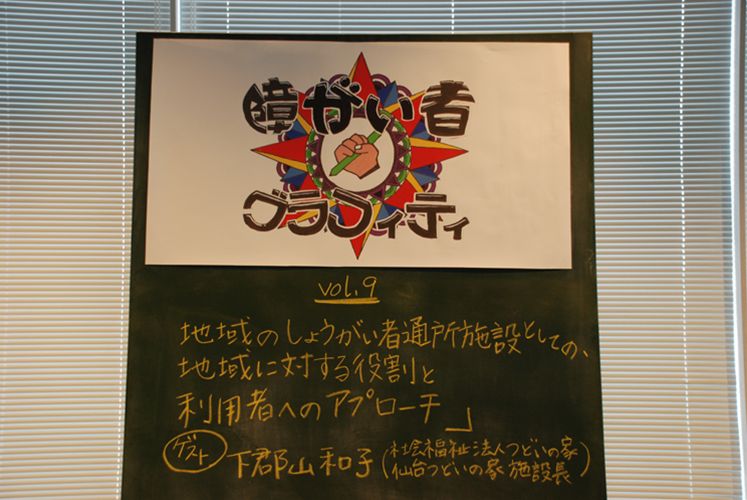 障がい者
グラフィティ
vol.9
地域のしょうがい者通所施設としての、
地域に対する役割と
利用者へのアプローチ」
ゲスト
下郡山和子
(社会福祉法人つどいの家
仙台つどいの家 施設長)